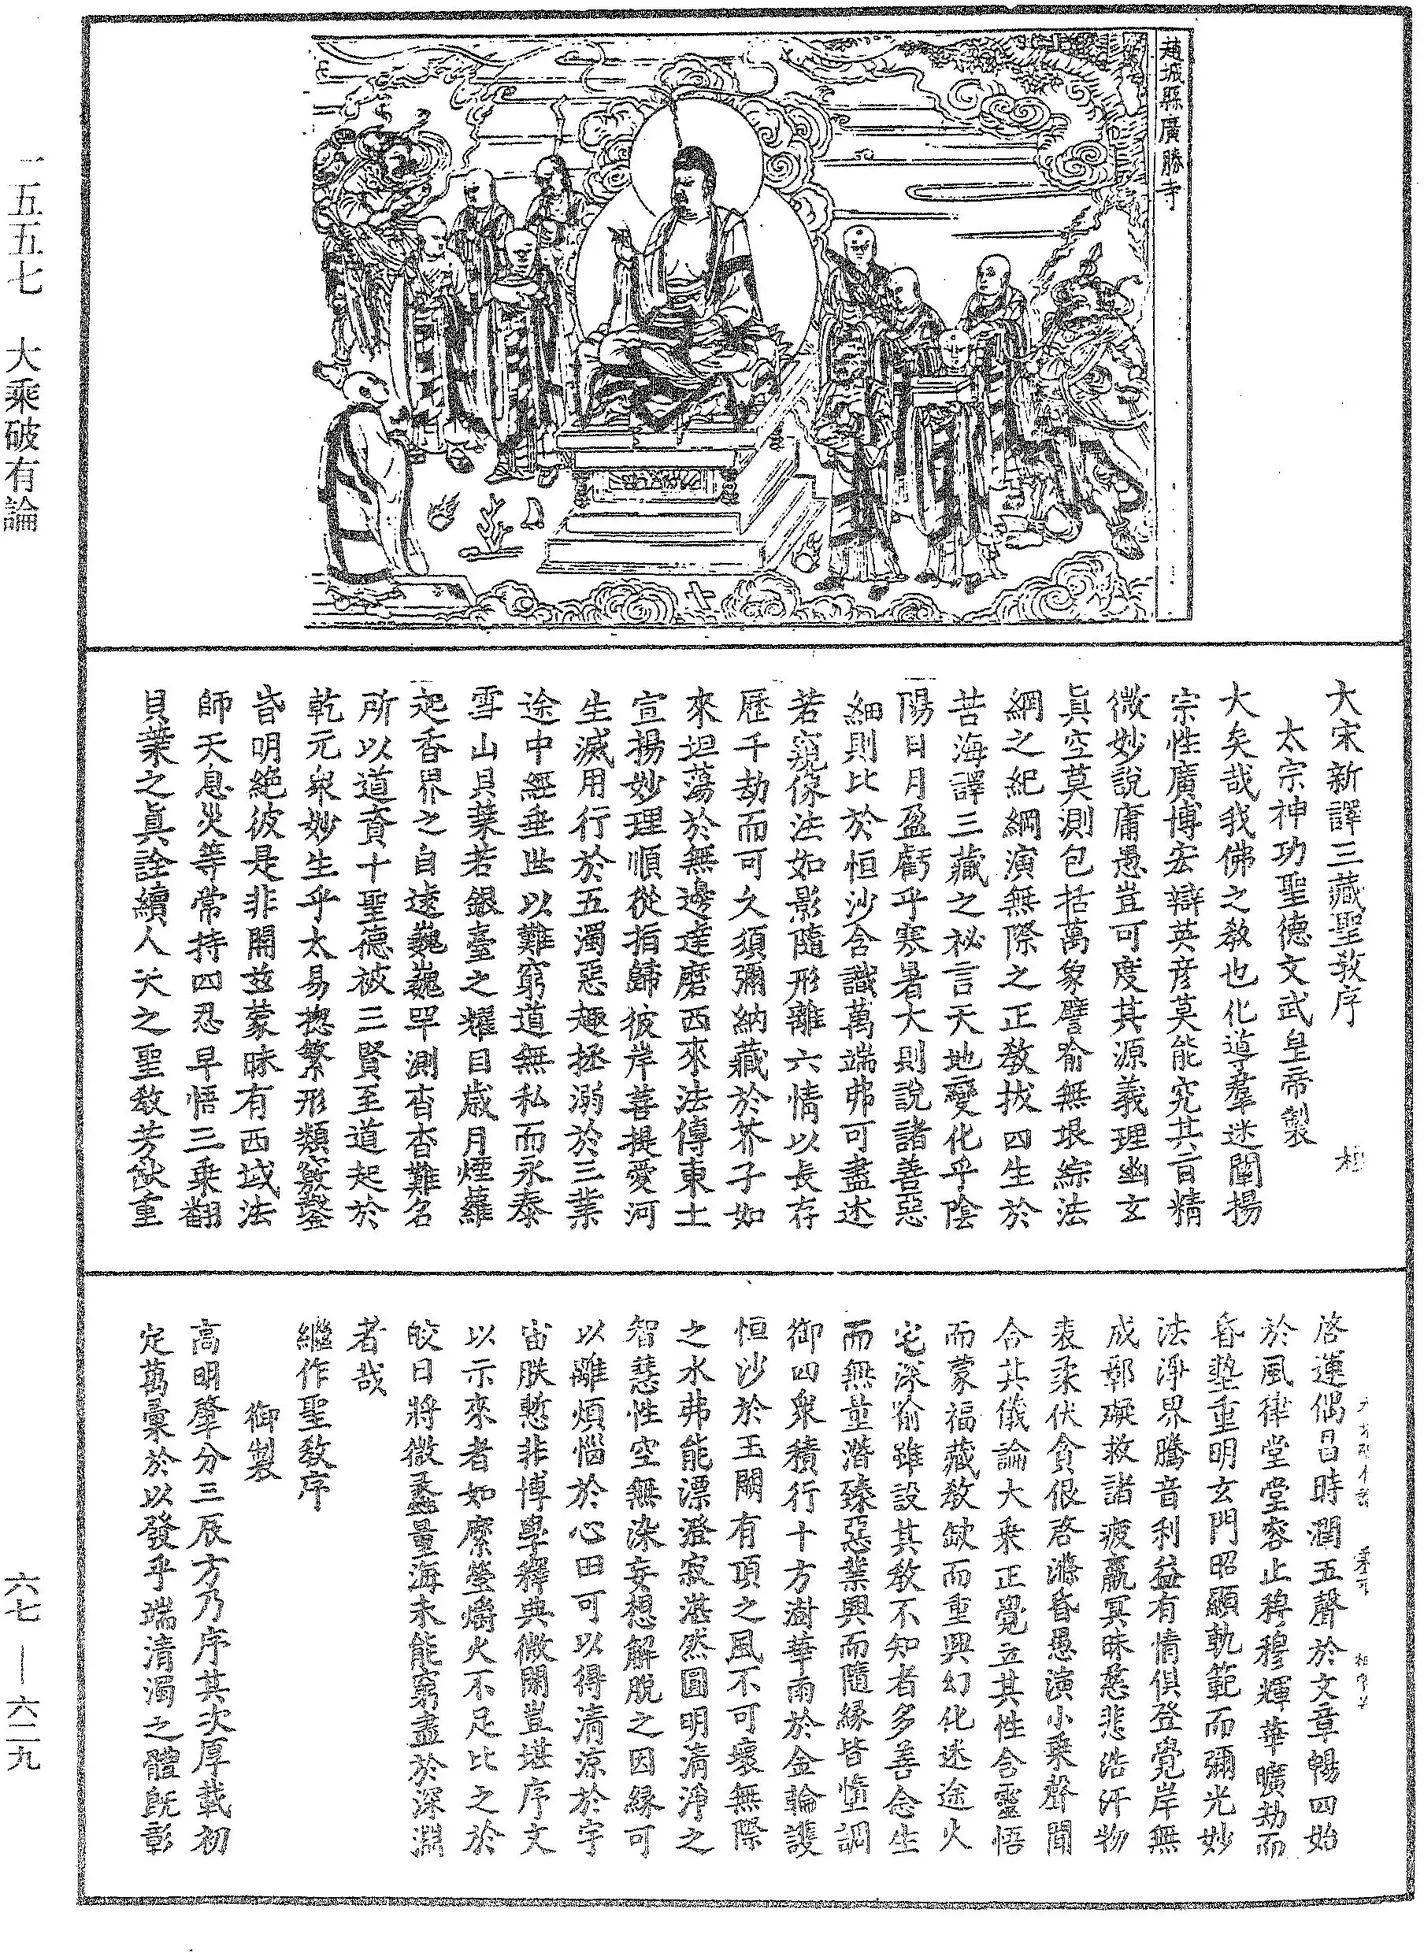 趙城縣廣勝寺
大宋新譯三藏聖教序
太宗神功聖德文武皇帝製
大矣哉我佛之教也化導羣迷闡揚
宗性廣博宏辯英彥莫能究其旨精
微妙說庸愚豈可度其源義理幽玄
真空莫測包括萬象譬喻無垠綜法
網之紀綱演無際之正教拔四生於
苦海譯三藏之祕言天地變化乎陰
陽日月盈虧乎寒暑大則說諸善惡
細則比於恒沙含識萬端弗可盡述
若窺像法如影隨形離六情以長存
歷千劫而可久須彌納藏於芥子如
來坦蕩於無邊達磨西來法傳東土
宣揚妙理順從指歸彼岸菩提愛河
生滅用行於五濁惡趣拯溺於三業
途中經垂世以難窮道無私而永泰
雪山貝葉若銀臺之耀目歲月煙蘿
起香界之自遠巍巍罕測杳杳難名
所以道賁十聖德被三賢至道起於
乾元眾妙生乎太易揔繁形類竅鑿
昏明絕彼是非開茲蒙昧有西域法
師天息災等常持四忍早悟三乘翻
貝葉之真詮續人天之聖教芳猷重
啓運偶昌時潤五聲於文章暢四始
於風律堂堂容止穆穆輝華曠劫而
昏墊重明玄門昭顯軌範而彌光妙
法淨界騰音利益有情俱登覺岸無
成鄣礙救諸疲羸冥昧慈悲浩汗物
表柔伏貪佷啓滌昏愚演小乘聲聞
合其儀論大乘正覺立其性含靈悟
而蒙福藏教缺而重興幻化迷途火
宅深喻雖設其教不知者多善念生
而無量潛臻惡業興而隨緣皆墮調
御四眾積行十方澍華雨於金輪護
恒沙於玉闕有頂之風不可壞無際
之水弗能漂澄寂湛然圓明清淨之
智慧性空無染妄想解脫之因緣可
以離煩惱於心田可以得清涼於宇
宙朕慙非博學釋典微閑豈堪序文
以示來者如縻螢爝火不足比之於
皎日將微蠡量海未能窮盡於深淵
者哉
繼作聖教序
御製
高明肇分三辰方乃序其次厚載初
定萬彙於以發乎端清濁之體既彰
一五五七　大乘破有論
六七　—　六二九